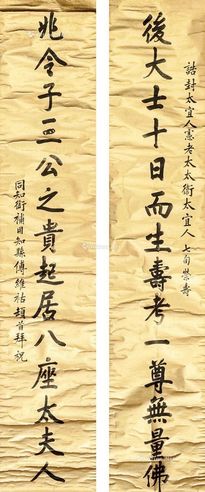 誥封太宜人憲老太太衛太宜人七旬榮壽
後大士十日而生壽考一尊無量佛
兆令子三公之貴起居八座太夫人
同知銜補用知縣傅維祜頓首拜祝